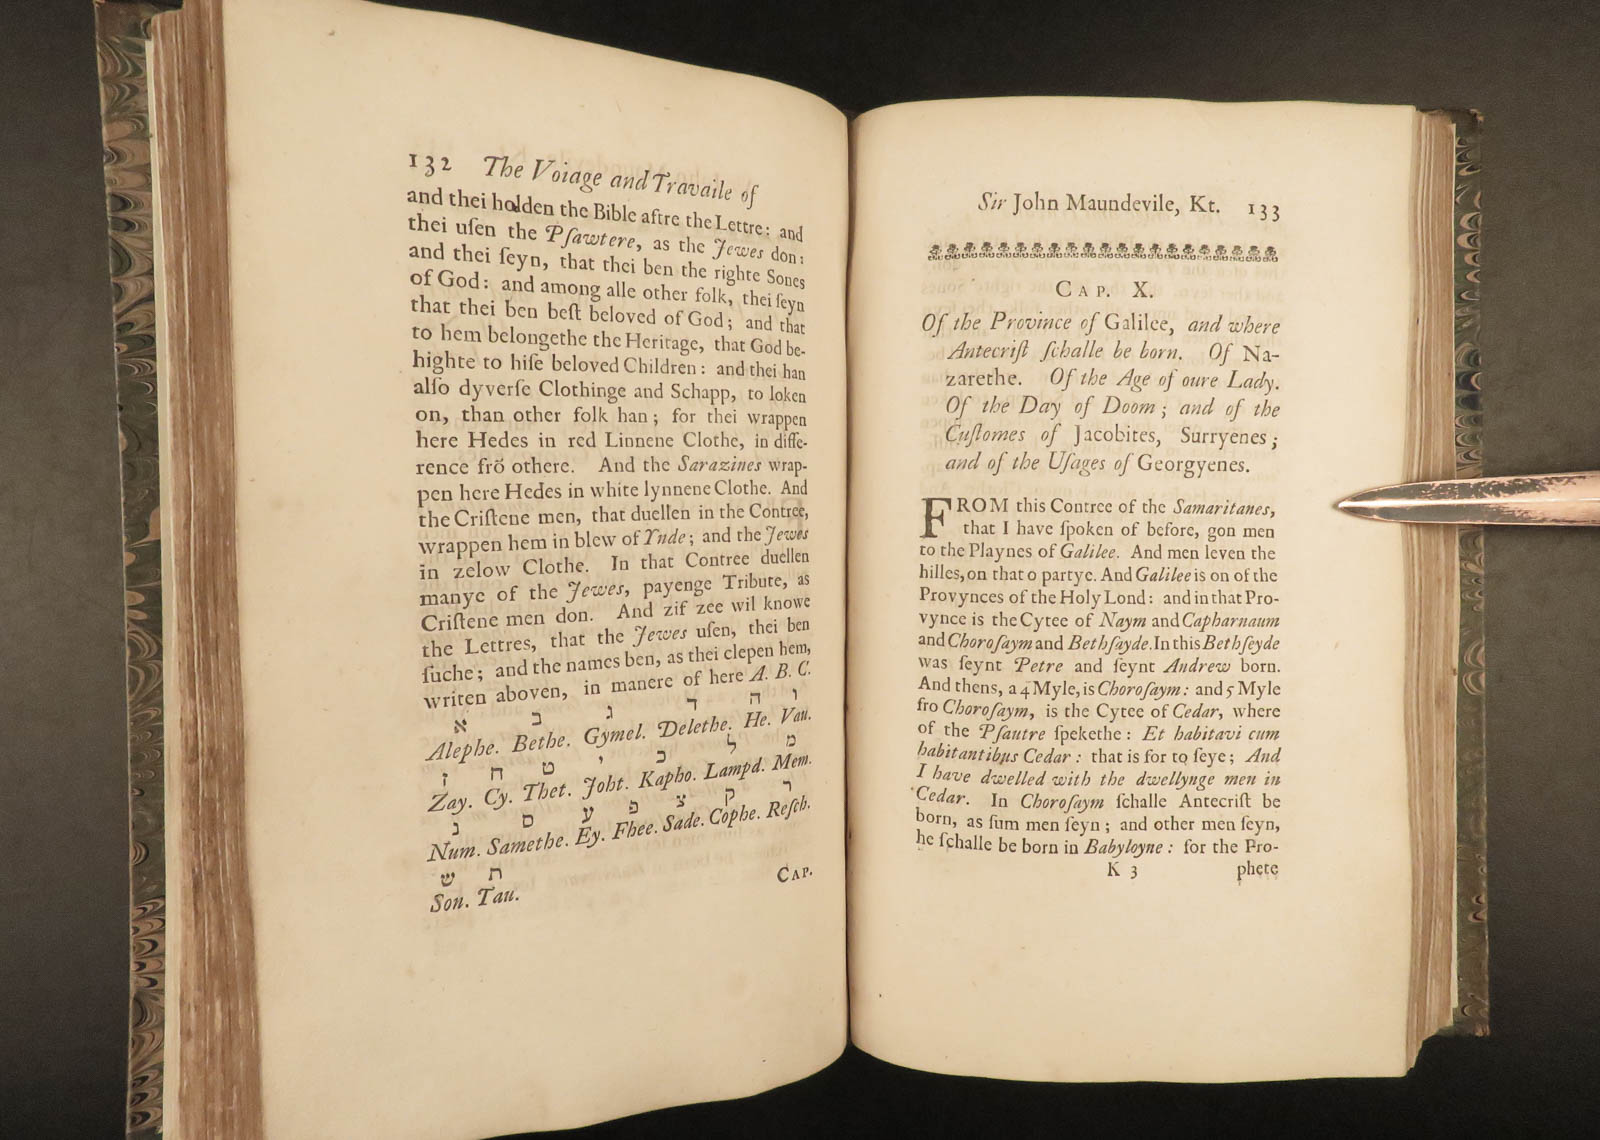 132 The Voiage and Travaile of
and thei holden the Bible aftre the Lettre: and
thei uſen the Pſawtere, as the Jewes don:
and thei ſeyn, that thei ben the righte Sones
of God: and among alle other folk, thei ſeyn
that thei ben beſt beloved of God; and that
to hem belongethe the Heritage, that God be-
highte to hiſe beloved Children: and thei han
alſo dyverſe Clothinge and Schapp, to loken
on, than other folk han; for thei wrappen
here Hedes in red Linnene Clothe, in diffe-
rence frō othere. And the Sarazines wrap-
pen here Hedes in white lynnene Clothe. And
the Criſtene men, that duellen in the Contree,
wrappen hem in blew of Ynde; and the Jewes
in zelow Clothe. In that Contree duellen
manye of the Jewes, payenge Tribute, as
Criſtene men don. And zif zee wil knowe
the Lettres, that the Jewes uſen, thei ben
ſuche; and the names ben, as thei clepen hem,
writen aboven, in manere of here A. B. C.
א ב ג ד ה ו
Alephe. Bethe. Gymel. Delethe. He. Vau.
ז ח ט י כ ל מ
Zay. Cy. Thet. Joht. Kapho. Lampd. Mem.
נ ס ע פ צ ק ר
Num. Samethe. Ey. Fhee. Sade. Cophe. Reſch.
ש ת
Son. Tau.
CAP.
Sir John Maundevile, Kt. 133
CAP. X.
Of the Province of Galilee, and where
Antecriſt ſchalle be born. Of Na-
zarethe. Of the Age of oure Lady.
Of the Day of Doom; and of the
Cuſtomes of Jacobites, Surryenes;
and of the Uſages of Georgyenes.
FROM this Contree of the Samaritanes,
that I have ſpoken of before, gon men
to the Playnes of Galilee. And men leven the
hilles, on that o partye. And Galilee is on of the
Provynces of the Holy Lond: and in that Pro-
vynce is the Cytee of Naym and Capharnaum
and Choroſaym and Bethſayde. In this Bethſeyde
was ſeynt Petre and ſeynt Andrew born.
And thens, a 4 Myle, is Choroſaym: and 5 Myle
fro Choroſaym, is the Cytee of Cedar, where
of the Pſautre ſpekethe: Et habitavi cum
habitantibus Cedar: that is for to ſeye; And
I have dwelled with the dwellynge men in
Cedar. In Choroſaym ſchalle Antecriſt be
born, as ſum men ſeyn; and other men ſeyn,
he ſchalle be born in Babyloyne: for the Pro-
K 3 phete